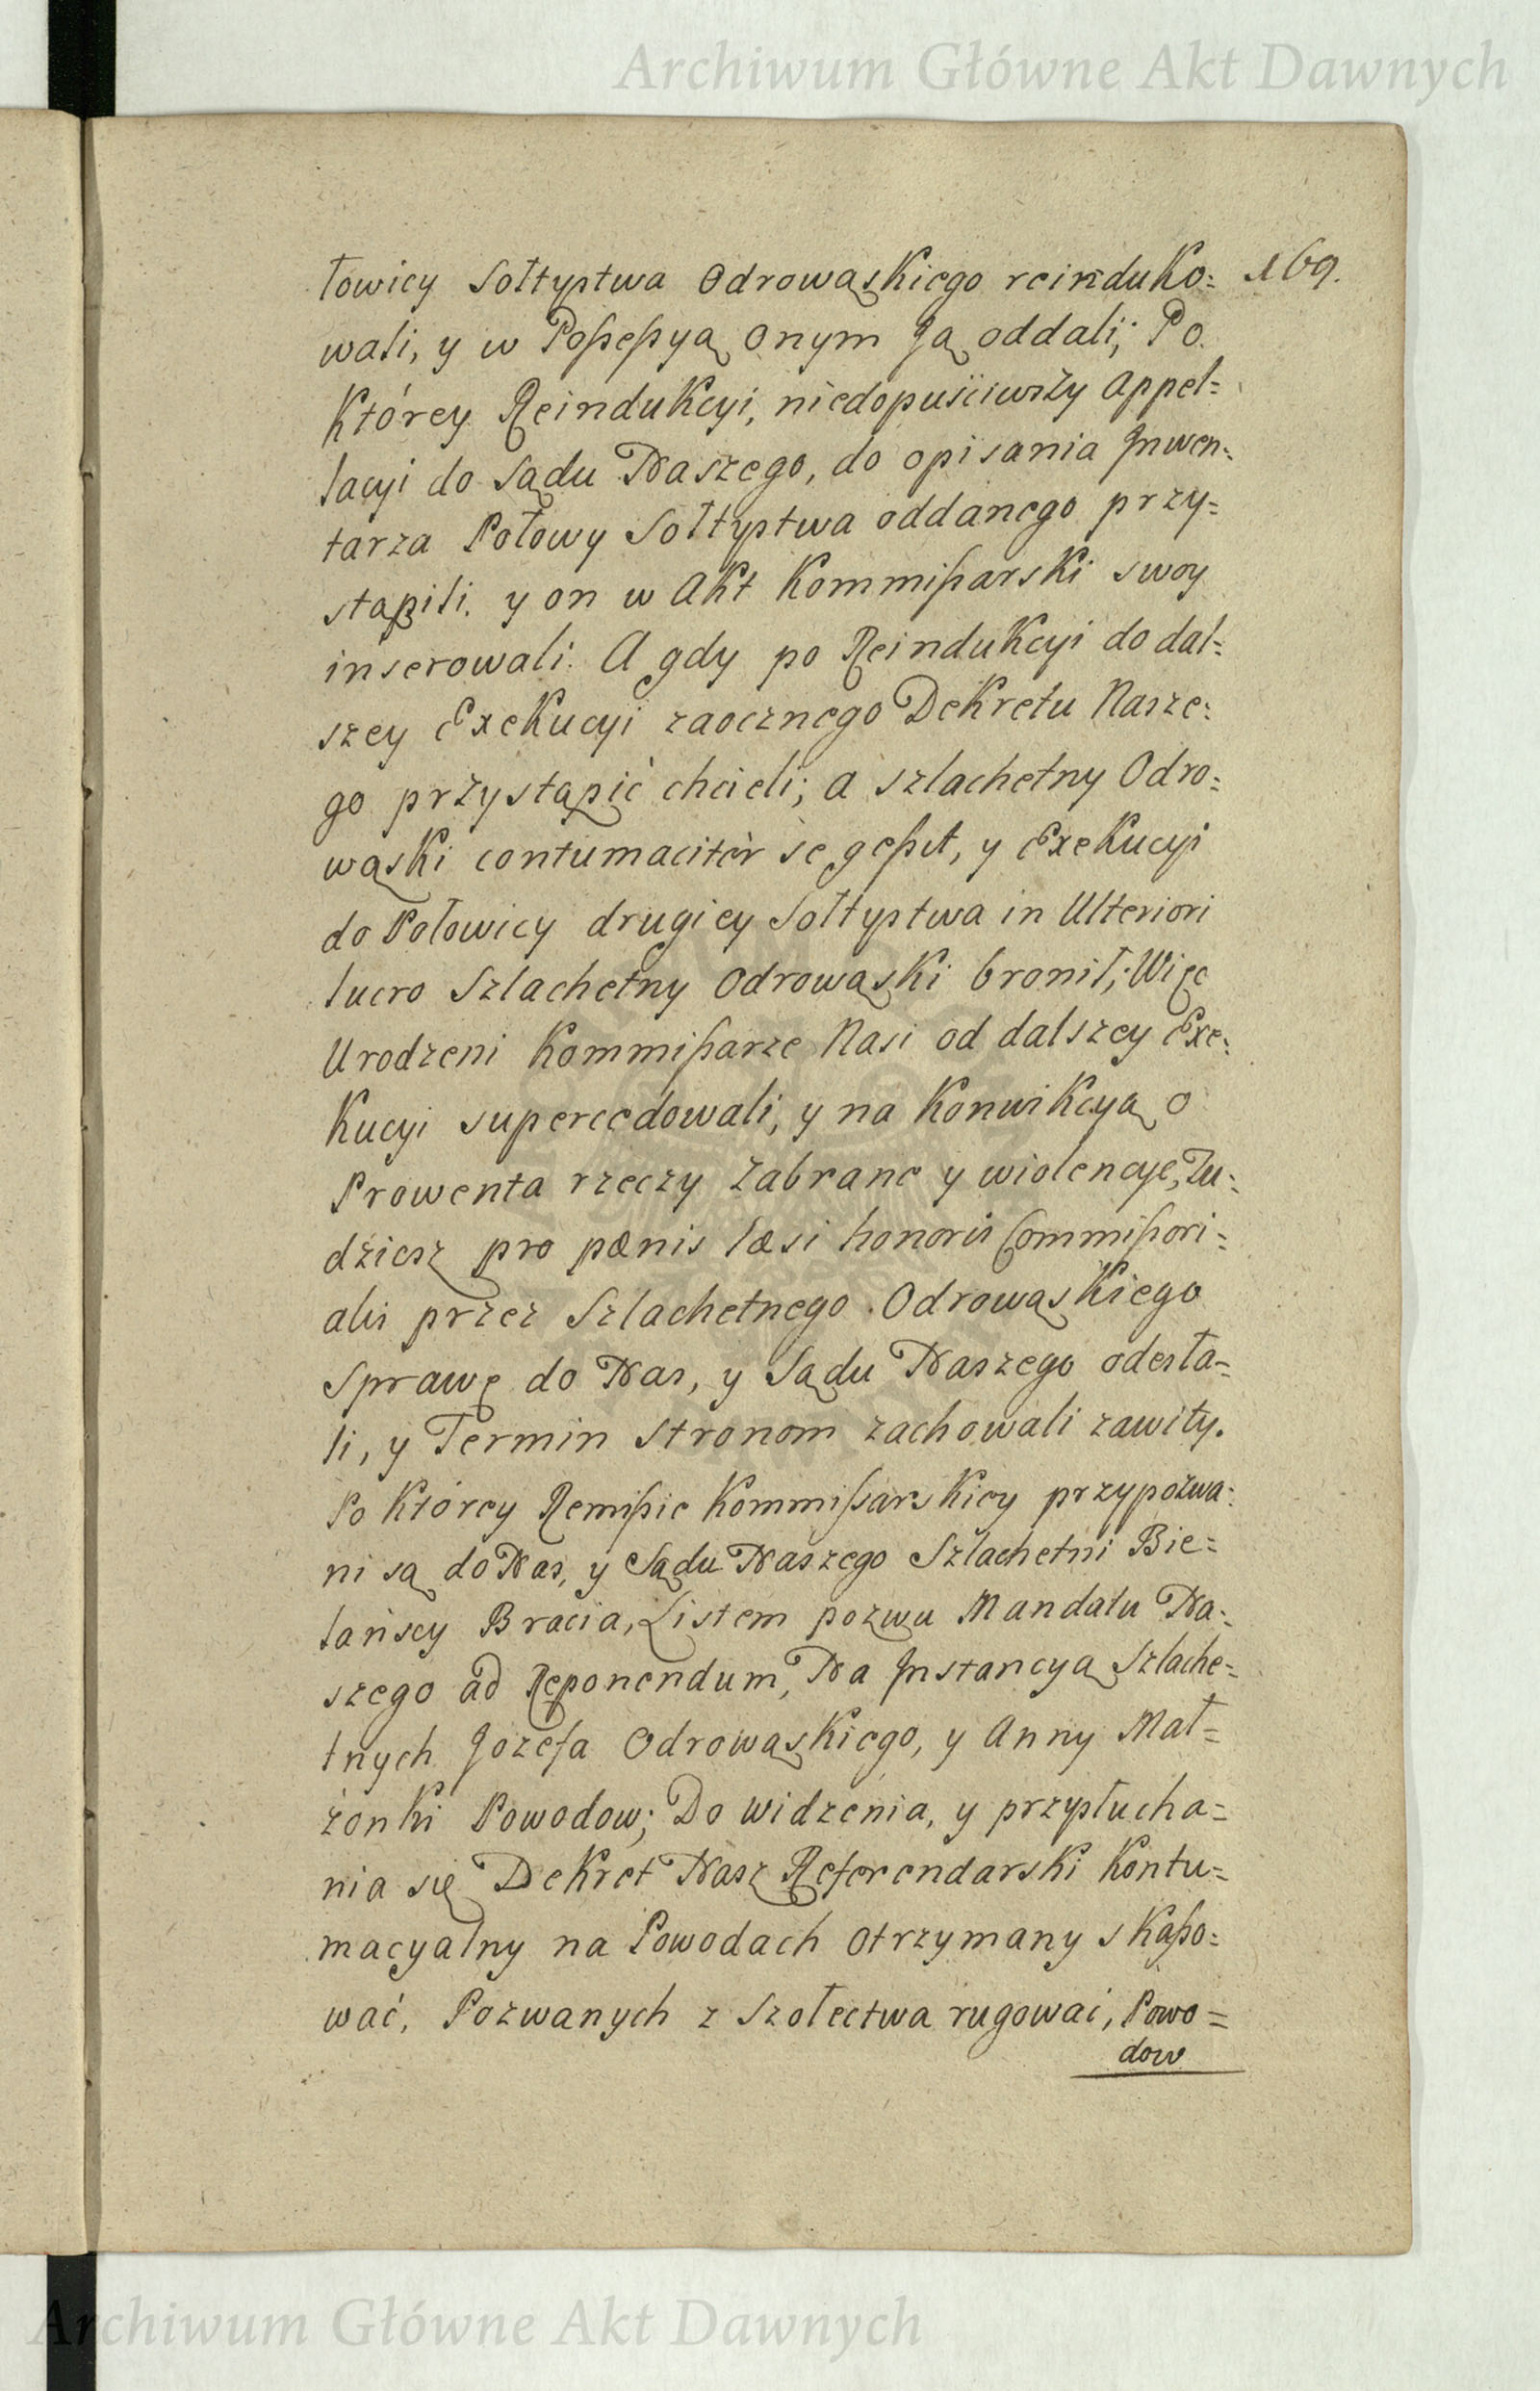 Archiwum Główne Akt Dawnych
169.
łowicy Sołtystwa Odrowąskiego reinduko:
wali, y w Poßeßyą onym Ją oddali; Po
Którey Reindukcyi, niedopuściwszy Appel=
lacyi do Sądu Naszego, do opisania Jnwen:
tarza Połowy Sołtystwa oddanego przy=
stąpili. y on w Akt Kommißarski swoy
inserowali. A gdy po Reindukcyi do dal=
szey Exekucyi zaocznego Dekretu Nasze:
go przystąpić chcieli; a Szlachetny Odro:
wąski contumacitèr se geßit, y Exekucyi
do Połowicy drugiey Sołtystwa in Ulteriori
lucro Szlachetny Odrowąski bronił; Więc
Urodzeni Kommißarze Nasi od dalszey Exe:
Kucyi supercedowali, y na Konwikcyą o
Prowenta rzeczy zabrane y wiolencye, Tu:
dziesz pro pœnis læsi honoris Commißori=
alis przez Szlachetnego Odrowąskiego
Sprawę do Nas, y Sądu Naszego odesła=
li, y Termin Stronom zachowali zawity.
Po Którey Remißie Kommißarskiey przypozwa:
ni są do Nas, y Sądu Naszego Szlachetni Bie=
lańscy Bracia, Listem pozwu Mandatu Na:
szego ad Reponendum, Na Jnstancyą Szlache=
tnych Jozefa Odrowąskiego, y Anny Mał=
żonki Powodow; Do widzenia, y przysłucha=
nia się Dekret Nasz Referendarski Kontu=
macyalny na Powodach otrzymany skaßo:
wać, Pozwanych z Szołectwa rugować, Powo=
dow
Archiwum Główne Akt Dawnych